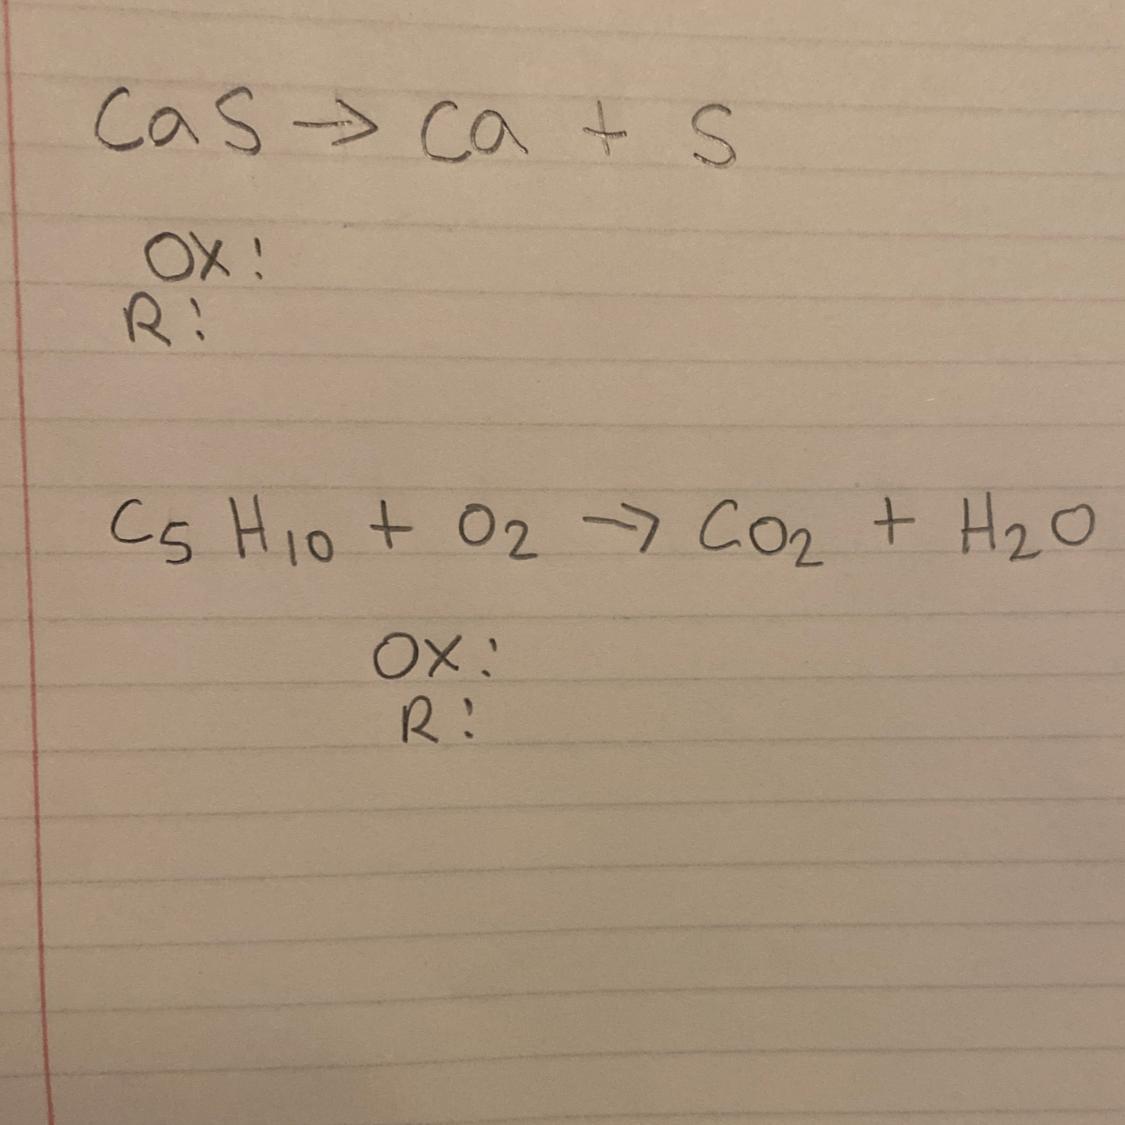 CaS → Ca + S
OX:
R:
C₅H₁₀ + O₂ → CO₂ + H₂O
OX:
R: